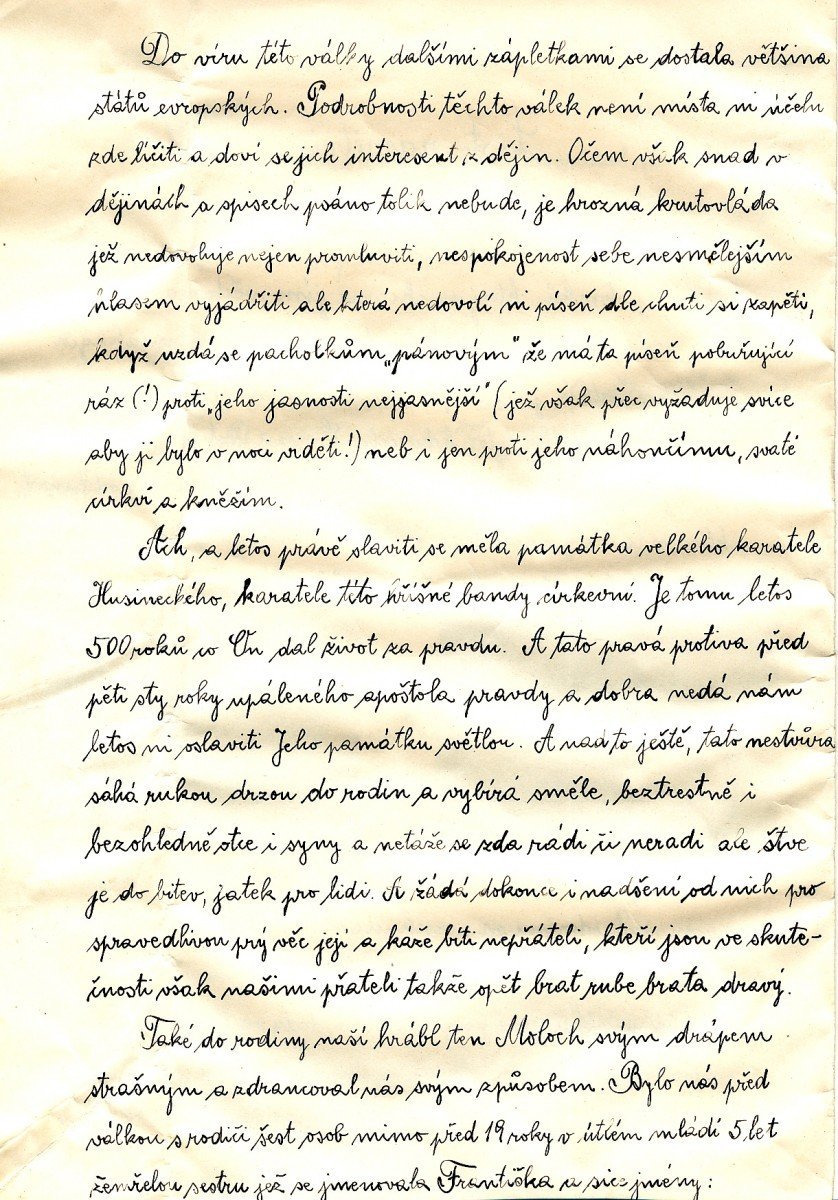 Do víru této války dalšími zápletkami se dostala většina
států evropských. Podrobnosti těchto válek není místa ni účelu
zde líčiti a doví se jich interesent z dějin. Očem však snad v
dějinách a spisech psáno tolik nebude, je hrozná krutovláda
jež nedovoluje nejen promluviti, nespokojenost sebe nesmělejším
hlasem vyjádřiti ale která nedovolí ni píseň dle chuti si zapěti,
když uzdá se pacholkům „pánovým" že má ta píseň pobuřující
ráz (!) proti „jeho jasnosti nejjasnější" (jež však přec vyžaduje svíce
aby ji bylo v noci viděti!) neb i jen proti jeho náhončímu, svaté
církvi a kněžím.
Ach, a letos právě slaviti se měla památka velkého karatele
Husineckého, karatele této hříšné bandy církevní. Je tomu letos
500 roků co On dal život za pravdu. A tato pravá protiva před
pěti sty roky upáleného apoštola pravdy a dobra nedá nám
letos ni oslaviti Jeho památku světlou. A nad to ještě, tato nestvůra
sáhá rukou drzou do rodin a vybírá směle, beztrestně i
bezohledně otce i syny a netáže se zda rádi či neradi ale štve
je do bitev, jatek pro lidi. A žádá dokonce i nadšení od nich pro
spravedlivou prý věc její a káže bíti nepřáteli, kteří jsou ve skute-
čnosti však našimi přáteli takže opět brat rube brata dravý.
Také do rodiny naší hrábl ten Moloch svým drápem
strašným a zdrancoval nás svým způsobem. Bylo nás před
válkou s rodiči šest osob mimo před 19 roky v útlém mládí 5 let
zemřelou sestru jež se jmenovala Františka a sice jmény: